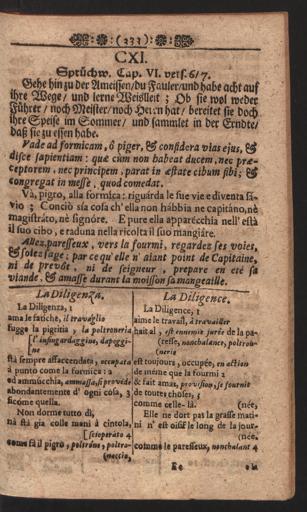 (333)
CXI.
Sprüchw. Cap. VI. vers. 6/7.
Gehe hin zu der Ameissen/du Fauler/und habe acht auf
ihre Wege/ und lerne Weißheit; Ob sie wol weder
Führer/ noch Meister/ noch Herrn hat/ bereitet sie doch
ihre Speise im Sommer/ und sammlet in der Erndte/
daß sie zu essen habe.
Vade ad formicam, ô piger, & considera vias ejus, &
disce sapientiam: quæ cùm non habeat ducem, nec præ-
ceptorem, nec principem, parat in æstate cibum sibi; &
congregat in messe, quod comedat.
Và, pigro, alla formica: riguarda le sue vie e diventa sa-
vio; Conciò sia cosa ch'ella non habbia ne capitáno, nè
magistráto, nè signóre. E pure ella apparécchia nell'està
il suo cibo, e raduna nella ricolta il suo mangiáre.
Allez, paresseux, vers la fourmi, regardez ses voies,
& soiez sage: par ce qu'elle n'aiant point de Capitaine,
ni de prevôt, ni de seigneur, prepare en eté sa
viande. & amasse durant la moisson sa mangeaille.
La Diligenza.
La Diligenza, 1
ama le fatiche, il travaglio
fugge la pigritia, la poltroneria
[l'insungardaggine, dapoggi-
ne
stà sempre affaccendata, occupata
à punto come la formica: 2
ed ammucchia, ammassa, si provede
abondantemente d'ogni cosa, 3
sicóme quella.
Non dorme tutto dì,
nà stà gia colle mani à cintola,
[scioperato 4
come fà il pigro, poltróne, poltro-
(neccio,
La Diligence.
La Diligence, 1
aime le travail, à travailler
hait al, est ennemie jurée de la pa-
(resse, nonchalance, poltron-
nerie
est toujours, occupée, en action
de même que la fourmi 2
& fait amas, provision, se fournit
de toutes choses, 3
comme celle-là. (née,
Elle ne dort pas la grasse mati-
ni n'est oisife le long de la jour-
(née.
comme le paresseux, nonchalant 4